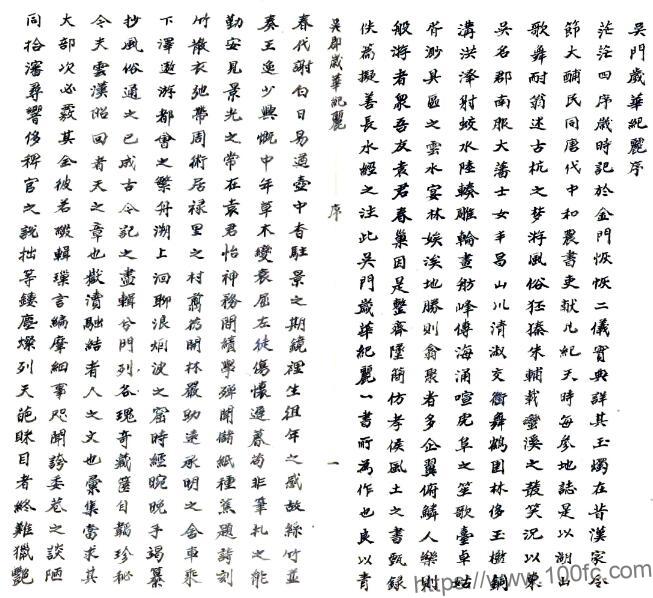 吳門歲華紀麗序
茫茫四序歲時記於金門恢恢二儀寶典詳其玉燭在昔漢家令
節大酺民同唐代中和農書吏獻凡紀天時每參地誌是以湖山
歌舞耐翁述古杭之夢游風俗狂獉朱輔載蠻溪之叢笑況以東
吳名郡南服大藩士女丰昌山川清淑交衢舞鶴園林侈玉樹銅
溝洪澤射蛟水陸轃雕輪畫舫峰傳海涌喧虎阜之笙歌臺卓姑
胥渺具區之雲水宴林娭溪地勝則翕聚者多企翼俯鱗人樂則
般游者眾吾友袁君春巢因是整齊墜簡仿孝侯風土之書甄錄
佚篇擬善長水經之注此吳門歲華紀麗一書所為作也良以青
吳郡歲華紀麗
序
一
春代謝白日易過壺中杳駐景之期鏡裡生徂年之感故絲竹並
奏王逸少興慨中年草木變衰屈左徒傷懷遲暮苟非筆札之能
勤安見景光之常在袁君怡神務閒績學殫聞儲紙種蕉題詩刻
竹散衣弛帶周術居祿里之村翦茆開林嚴助還承明之舍車乘
下澤遨游都會之繁舟溯上洄聊浪烟波之窟時經晼晚手竭纂
抄風俗通之已成古今記之盡輯分門列各瑰奇藏篋目韜珍秘
今夫雲漢昭回者天之章也嶽瀆融結者人之文也彙集當求其
大部次必覈其全彼若掇輯瓌言編摩細事咫聞誇委巷之談陋
同拾瀋尋響侈稗官之說拙等鏤塵燦列天葩眯目者終難獵艷
https://www.100fc.com